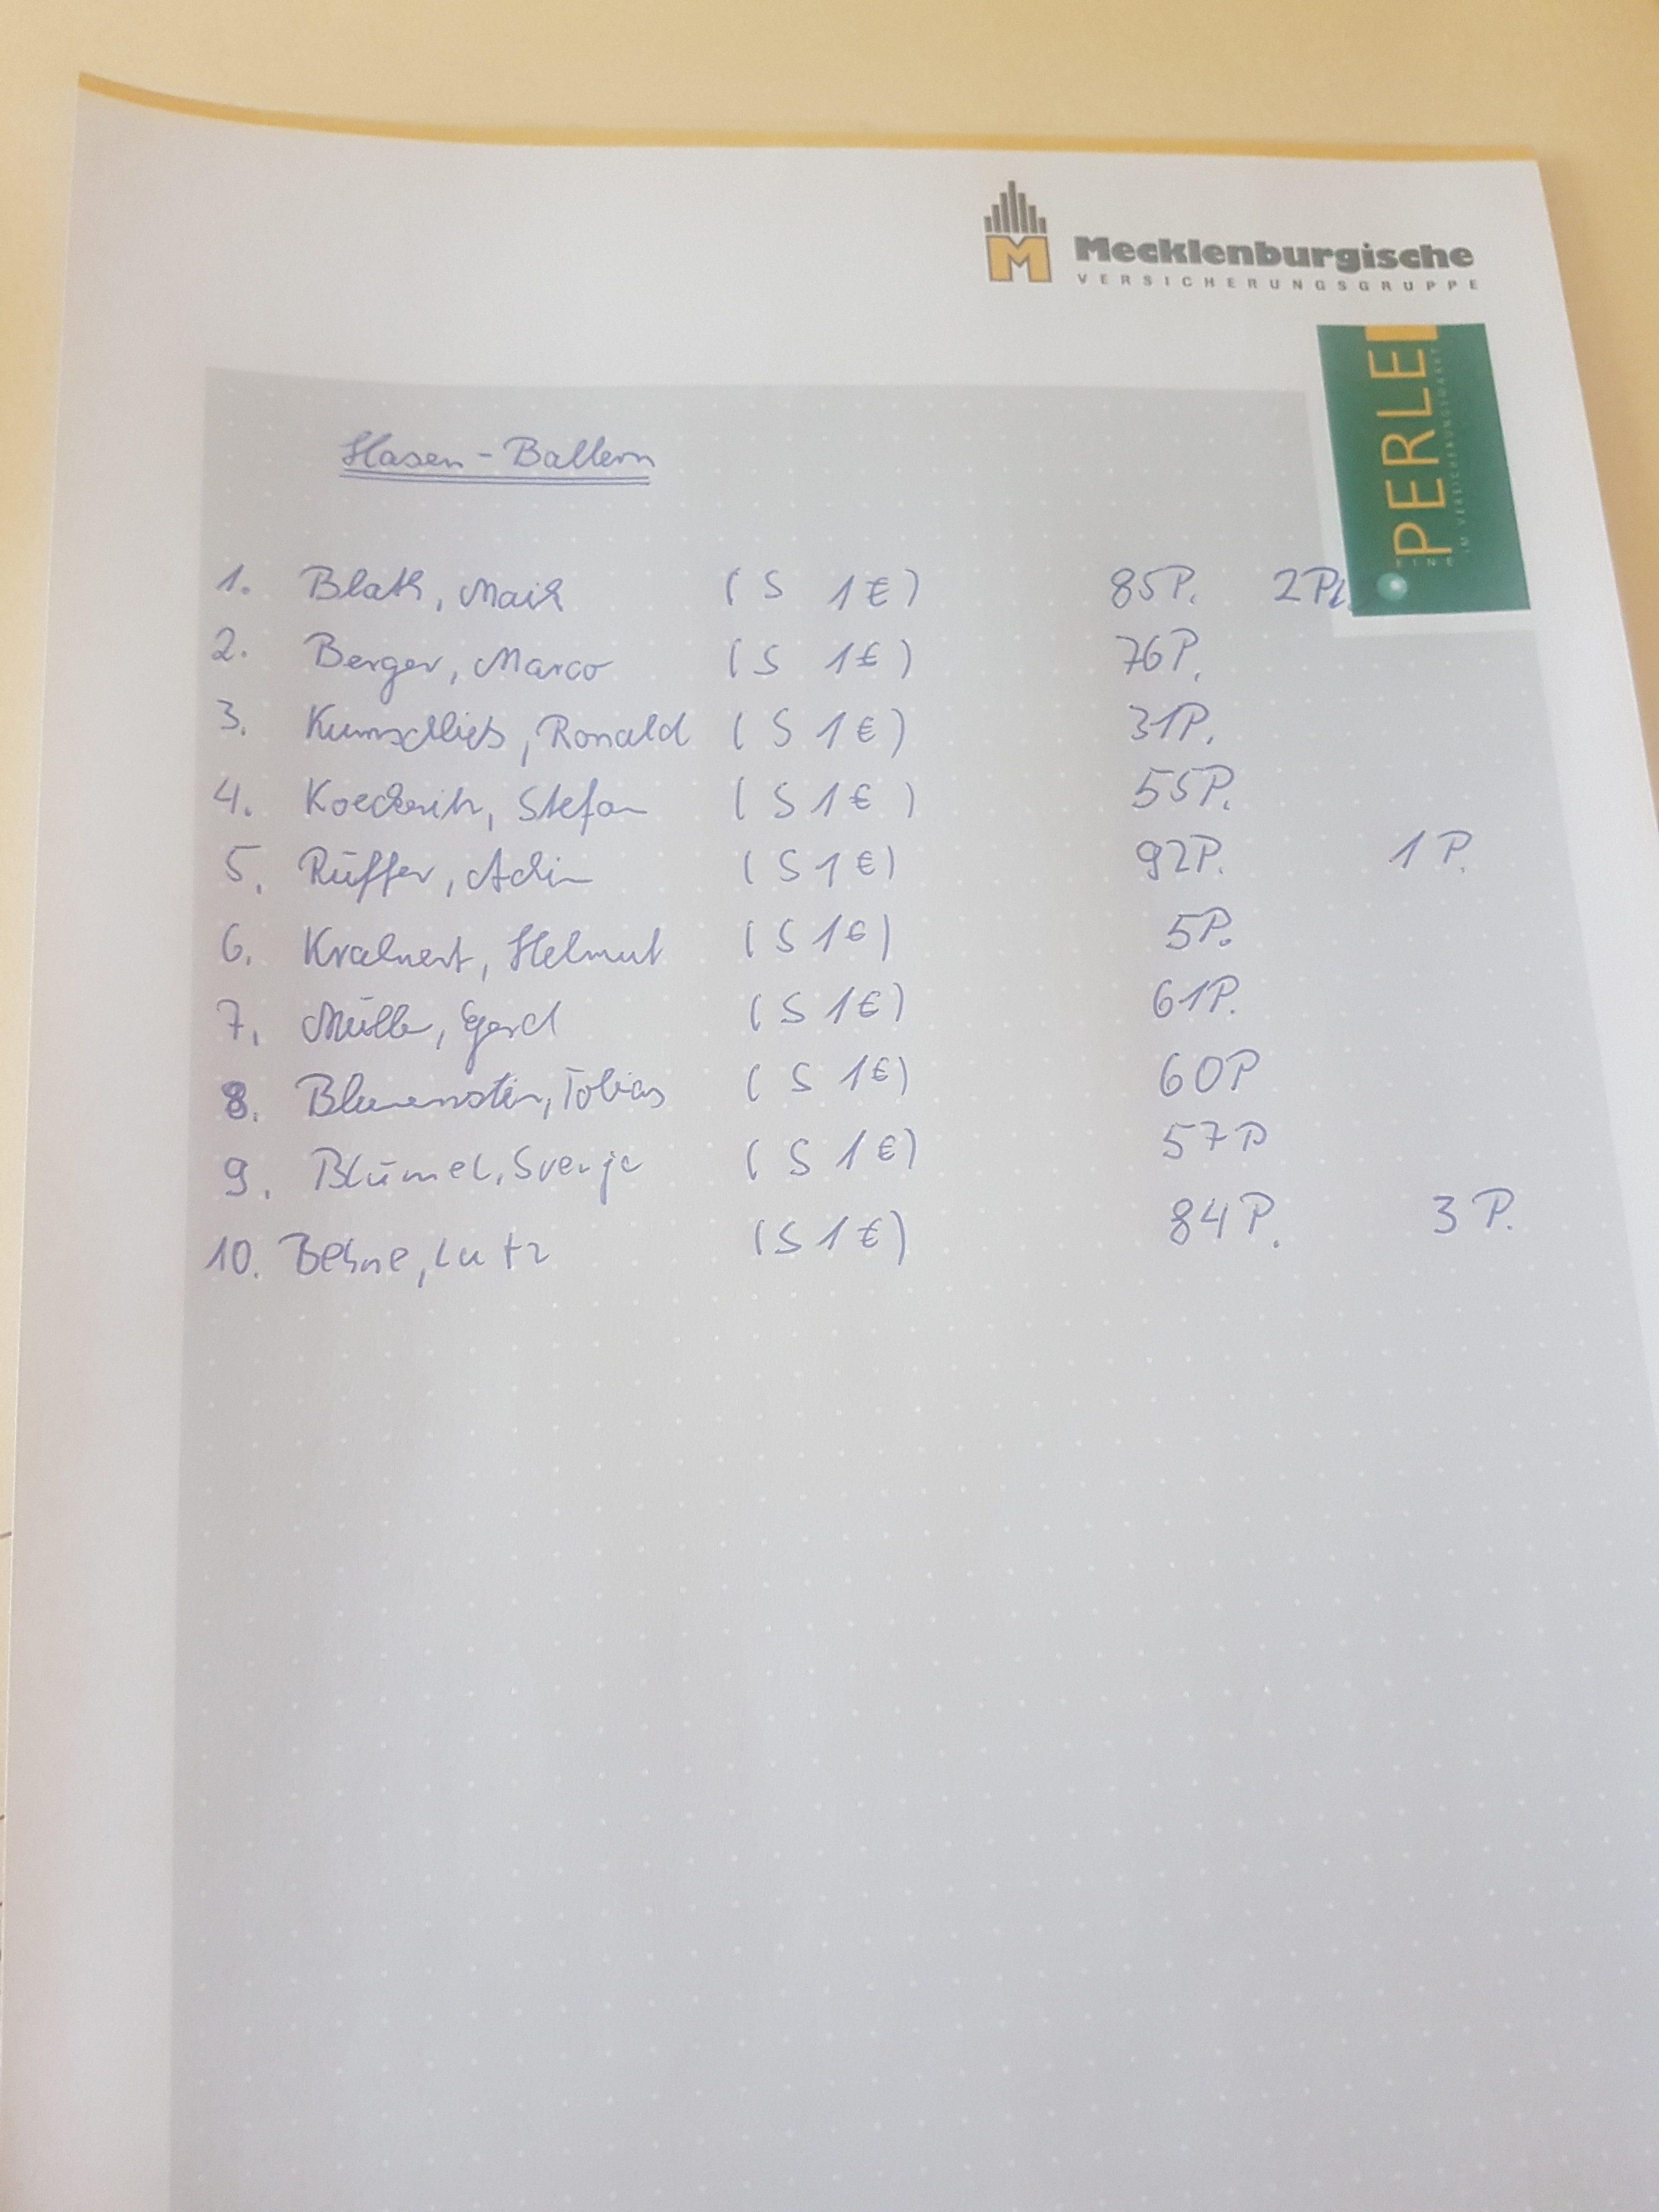 Mecklenburgische
VERSICHERUNGSGRUPPE
EINE PERLE
IM VERSICHERUNGSMARKT
Hasen-Ballern
1. Blath, Maik (S 1€) 85P. 2Pl.
2. Berger, Marco (S 1€) 76P.
3. Ronald (S 1€) 31P.
4. Stefan (S 1€) 55P.
5. Rüffer, Achim (S 1€) 92P. 1P.
6. Helmut (S 1€) 5P.
7. Müller, Gerd (S 1€) 61P.
8. Blumenstein, Tobias (S 1€) 60P
9. Blümel, Svenja (S 1€) 57P
10. Behne, Lutz (S 1€) 84P. 3P.